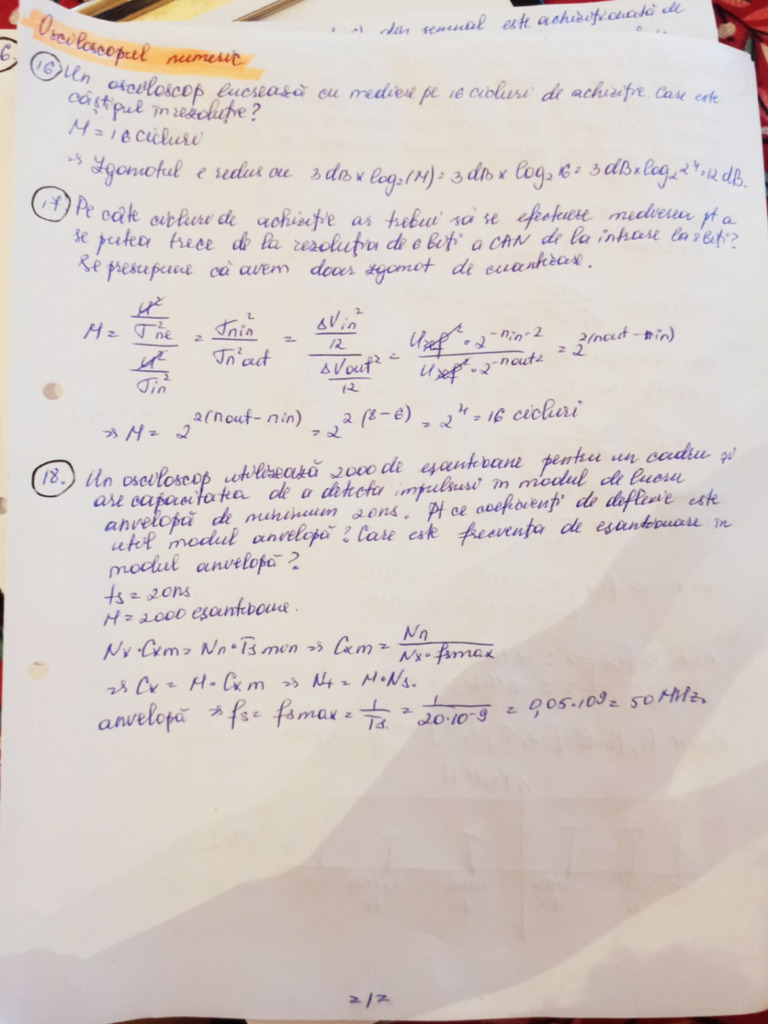 din semnal este achiziționată de
6.
Osciloscopul numeric
16 Un osciloscop lucrează cu mediere pe 16 cicluri de achiziție. Care este
câștigul în rezoluție?
M = 16 cicluri
⇒ Zgomotul e redus cu 3dB × log₂(M) = 3dB × log₂ 16 = 3dB × log₂ 2⁴ = 12 dB.
17 Pe câte cicluri de achiziție ar trebui să se efectueze medierea pt a
se putea trece de la rezoluția de 6 biți a CAN de la intrare la 8 biți?
Se presupune că avem doar zgomot de cuantizare.
M = (U²/σne²)/(U²/σin²) = σnin²/σn²out = (ΔVin²/12)/(ΔVout²/12) = (Uref²·2^-nin·2)/(Uref²·2^-nout2) = 2^2(nout-nin)
⇒ M = 2^2(nout-nin) = 2^2(8-6) = 2⁴ = 16 cicluri
18. Un osciloscop utilizează 2000 de eșantioane pentru un cadru și
are capacitatea de a detecta impulsuri în modul de lucru
anvelopă de minimum 20ns. Pt ce coeficienți de deflexie este
util modul anvelopă? Care este frecvența de eșantionare în
modul anvelopă?
ts = 20ns
M = 2000 eșantioane.
Nx·Cxm = Nn·Ts min ⇒ Cxm = Nn/(Nx·fsmax)
⇒ Cx = M·Cxm ⇒ Nt = M·Ns.
anvelopă ⇒ fs = fsmax = 1/Ts = 1/(20·10^-9) = 0,05·10⁹ = 50 MHz
2/2